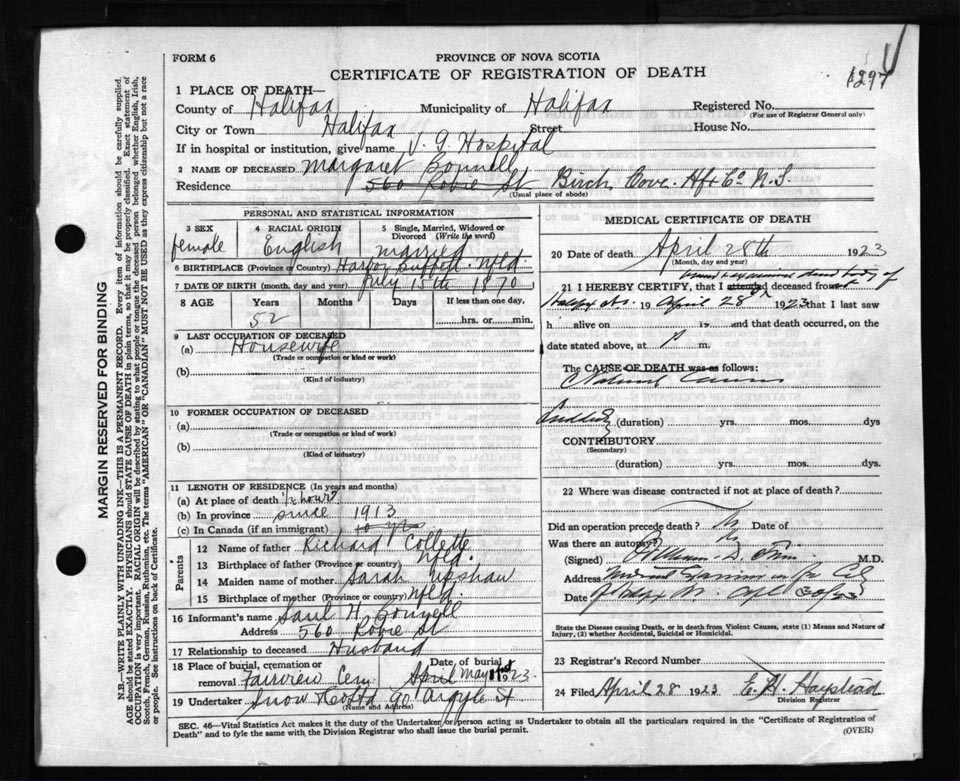 1297
FORM 6
PROVINCE OF NOVA SCOTIA
CERTIFICATE OF REGISTRATION OF DEATH
1 PLACE OF DEATH—
County of Halifax Municipality of Halifax Registered No.
(For use of Registrar General only)
City or Town Halifax Street House No.
If in hospital or institution, give name V. G. Hospital
2 NAME OF DECEASED Margaret Bonnell
Residence 560 Robie St Birch Cove. Hfx Co N.S
(Usual place of abode)
PERSONAL AND STATISTICAL INFORMATION
3 SEX 4 RACIAL ORIGIN 5 Single, Married, Widowed or Divorced (Write the word)
female English married
6 BIRTHPLACE (Province or Country) Harbor Buffett. Nfld
7 DATE OF BIRTH (month, day and year) July 15th 1870
8 AGE Years Months Days If less than one day,
52 hrs. or min.
9 LAST OCCUPATION OF DECEASED
(a) Housewife
(Trade or occupation or kind of work)
(b)
(Kind of industry)
10 FORMER OCCUPATION OF DECEASED
(a)
(Trade or occupation or kind of work)
(b)
(Kind of industry)
11 LENGTH OF RESIDENCE (In years and months)
(a) At place of death ½ hour
(b) In province since 1913
(c) In Canada (if an immigrant) 10 yrs
Parents
12 Name of father Richard Collett
13 Birthplace of father (Province or country) Nfld.
14 Maiden name of mother Sarah Upshaw
15 Birthplace of mother (Province or country) Nfld.
16 Informant's name Saul H. Bonnell
Address 560 Robie St
17 Relationship to deceased Husband
18 Place of burial, cremation or removal Fairview Cem Date of burial April May 1st 1923
19 Undertaker Snow & Co Ltd 90 Argyle St
(Name and Address)
MEDICAL CERTIFICATE OF DEATH
20 Date of death April 28th 1923
(Month, day and year)
examined dead body of
21 I HEREBY CERTIFY, that I attended deceased from
19 April 28th 1923 that I last saw
h alive on 19 and that death occurred, on the
date stated above, at P m.
The CAUSE OF DEATH was as follows:
Natural Causes
Sudden (duration) yrs. mos. dys
CONTRIBUTORY
(Secondary)
(duration) yrs. mos. dys.
22 Where was disease contracted if not at place of death?
Did an operation precede death? No Date of
Was there an autopsy? No
(Signed) William D. M.D.
Address Medical Examiner
Date Apl 30/23
State the Disease causing Death, or in death from Violent Causes, state (1) Means and Nature of Injury, (2) whether Accidental, Suicidal or Homicidal.
23 Registrar's Record Number
24 Filed April 28 1923 E. H. Haystead
Division Registrar
SEC. 46—Vital Statistics Act makes it the duty of the Undertaker or person acting as Undertaker to obtain all the particulars required in the "Certificate of Registration of
Death" and to fyle the same with the Division Registrar who shall issue the burial permit.
(OVER)
MARGIN RESERVED FOR BINDING
N.B.—WRITE PLAINLY WITH UNFADING INK—THIS IS A PERMANENT RECORD. Every item of information should be carefully supplied.
AGE should be stated EXACTLY. PHYSICIANS should STATE CAUSE OF DEATH in plain terms, so that it may be properly classified. Exact statement of
OCCUPATION is very important. RACIAL ORIGIN will be described by stating to what people or tongue the deceased person belonged whether English, Irish,
Scotch, French, German, Russian, Ruthenian, etc. The terms "AMERICAN" OR "CANADIAN" MUST NOT BE USED as they express citizenship but not a race
or people. See instructions on back of Certificate.